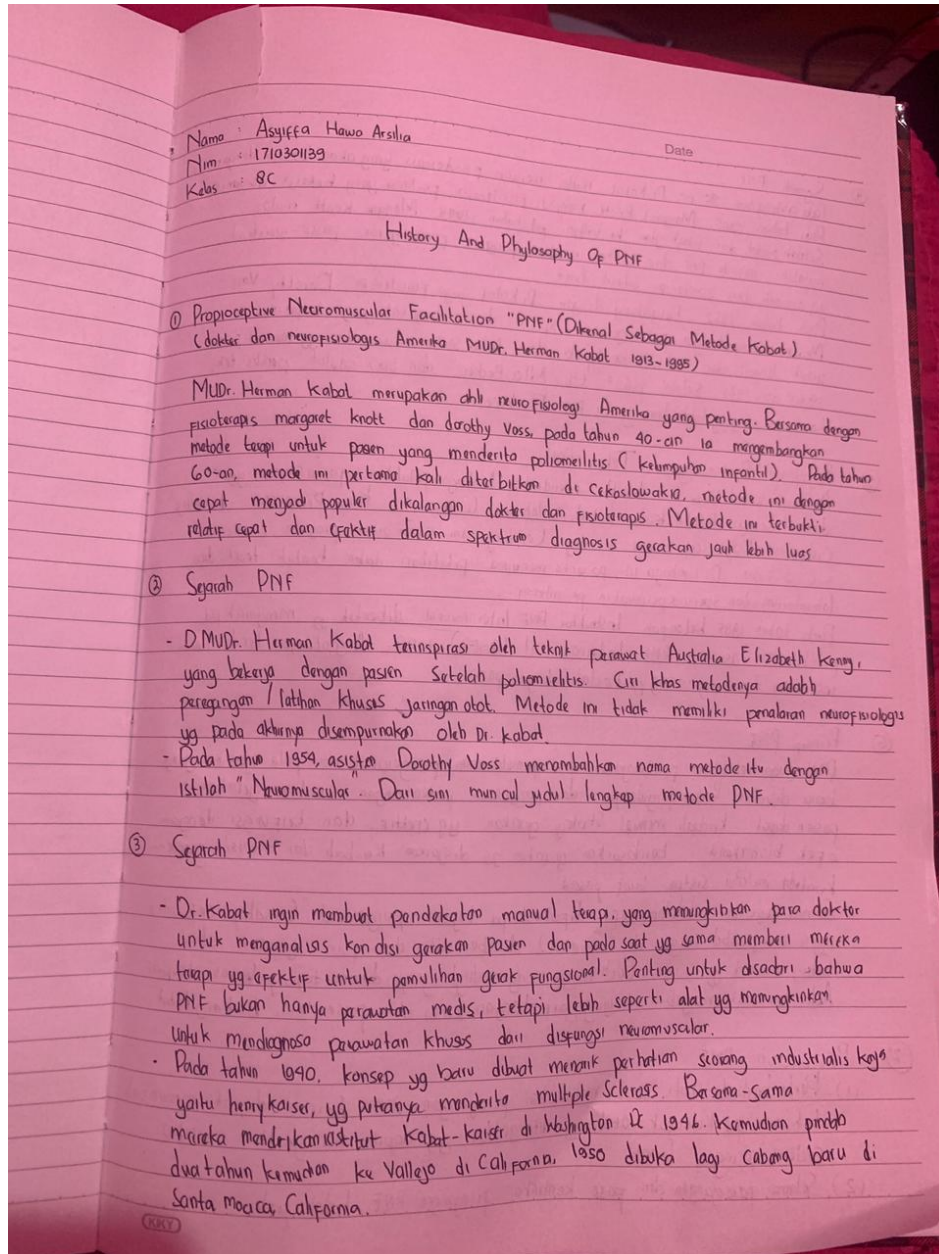 Date
Nama : Asyiffa Hawa Arsilia
Nim : 1710301139
Kelas : 8C
History And Phylosophy Of PNF
① Propioceptive Neuromuscular Facilitation "PNF" (Dikenal Sebagai Metode Kabat)
(dokter dan neurofisiologis Amerika MUDr. Herman Kabat 1913-1995)
MUDr. Herman Kabat merupakan ahli neurofisiologi Amerika yang penting. Bersama dengan
fisioterapis margaret knott dan dorothy Voss, pada tahun 40-an ia mengembangkan
metode terapi untuk pasien yang menderita poliomeilitis (kelumpuhan infantil). Pada tahun
60-an, metode ini pertama kali diterbitkan di Cekoslowakia, metode ini dengan
cepat menjadi populer dikalangan dokter dan fisioterapis. Metode ini terbukti
relatif cepat dan efektif dalam spektrum diagnosis gerakan jauh lebih luas
② Sejarah PNF
- DMUDr. Herman Kabat terinspirasi oleh teknik perawat Australia Elizabeth Kenny,
yang bekerja dengan pasien Setelah poliomielitis. Ciri khas metodenya adalah
peregangan / latihan khusus jaringan otot. Metode ini tidak memiliki penalaran neurofisiologis
yg pada akhirnya disempurnakan oleh Dr. Kabat.
- Pada tahun 1954, asisten Dorothy Voss menambahkan nama metode itu dengan
istilah "Neuromuscular". Dari sini muncul judul lengkap metode PNF.
③ Sejarah PNF
- Dr. Kabat ingin membuat pendekatan manual terapi, yang memungkinkan para doktor
untuk menganalisas kondisi gerakan pasien dan pada saat yg sama memberi mereka
terapi yg efektif untuk pemulihan gerak fungsional. Penting untuk disadari bahwa
PNF bukan hanya perawatan medis, tetapi lebih seperti alat yg memungkinkan
untuk mendiagnosa perawatan khusus dari disfungsi neuromuscular.
- Pada tahun 1940, konsep yg baru dibuat menarik perhatian seorang industrialis kaya
yaitu henry kaiser, yg putranya menderita multiple Sclerass. Bersama-Sama
mereka mendirikan institut Kabat-Kaiser di Washington DC 1946. Kemudian pindah
dua tahun kemudian ke Vallejo di California, 1950 dibuka lagi cabang baru di
Santa California.
KKY